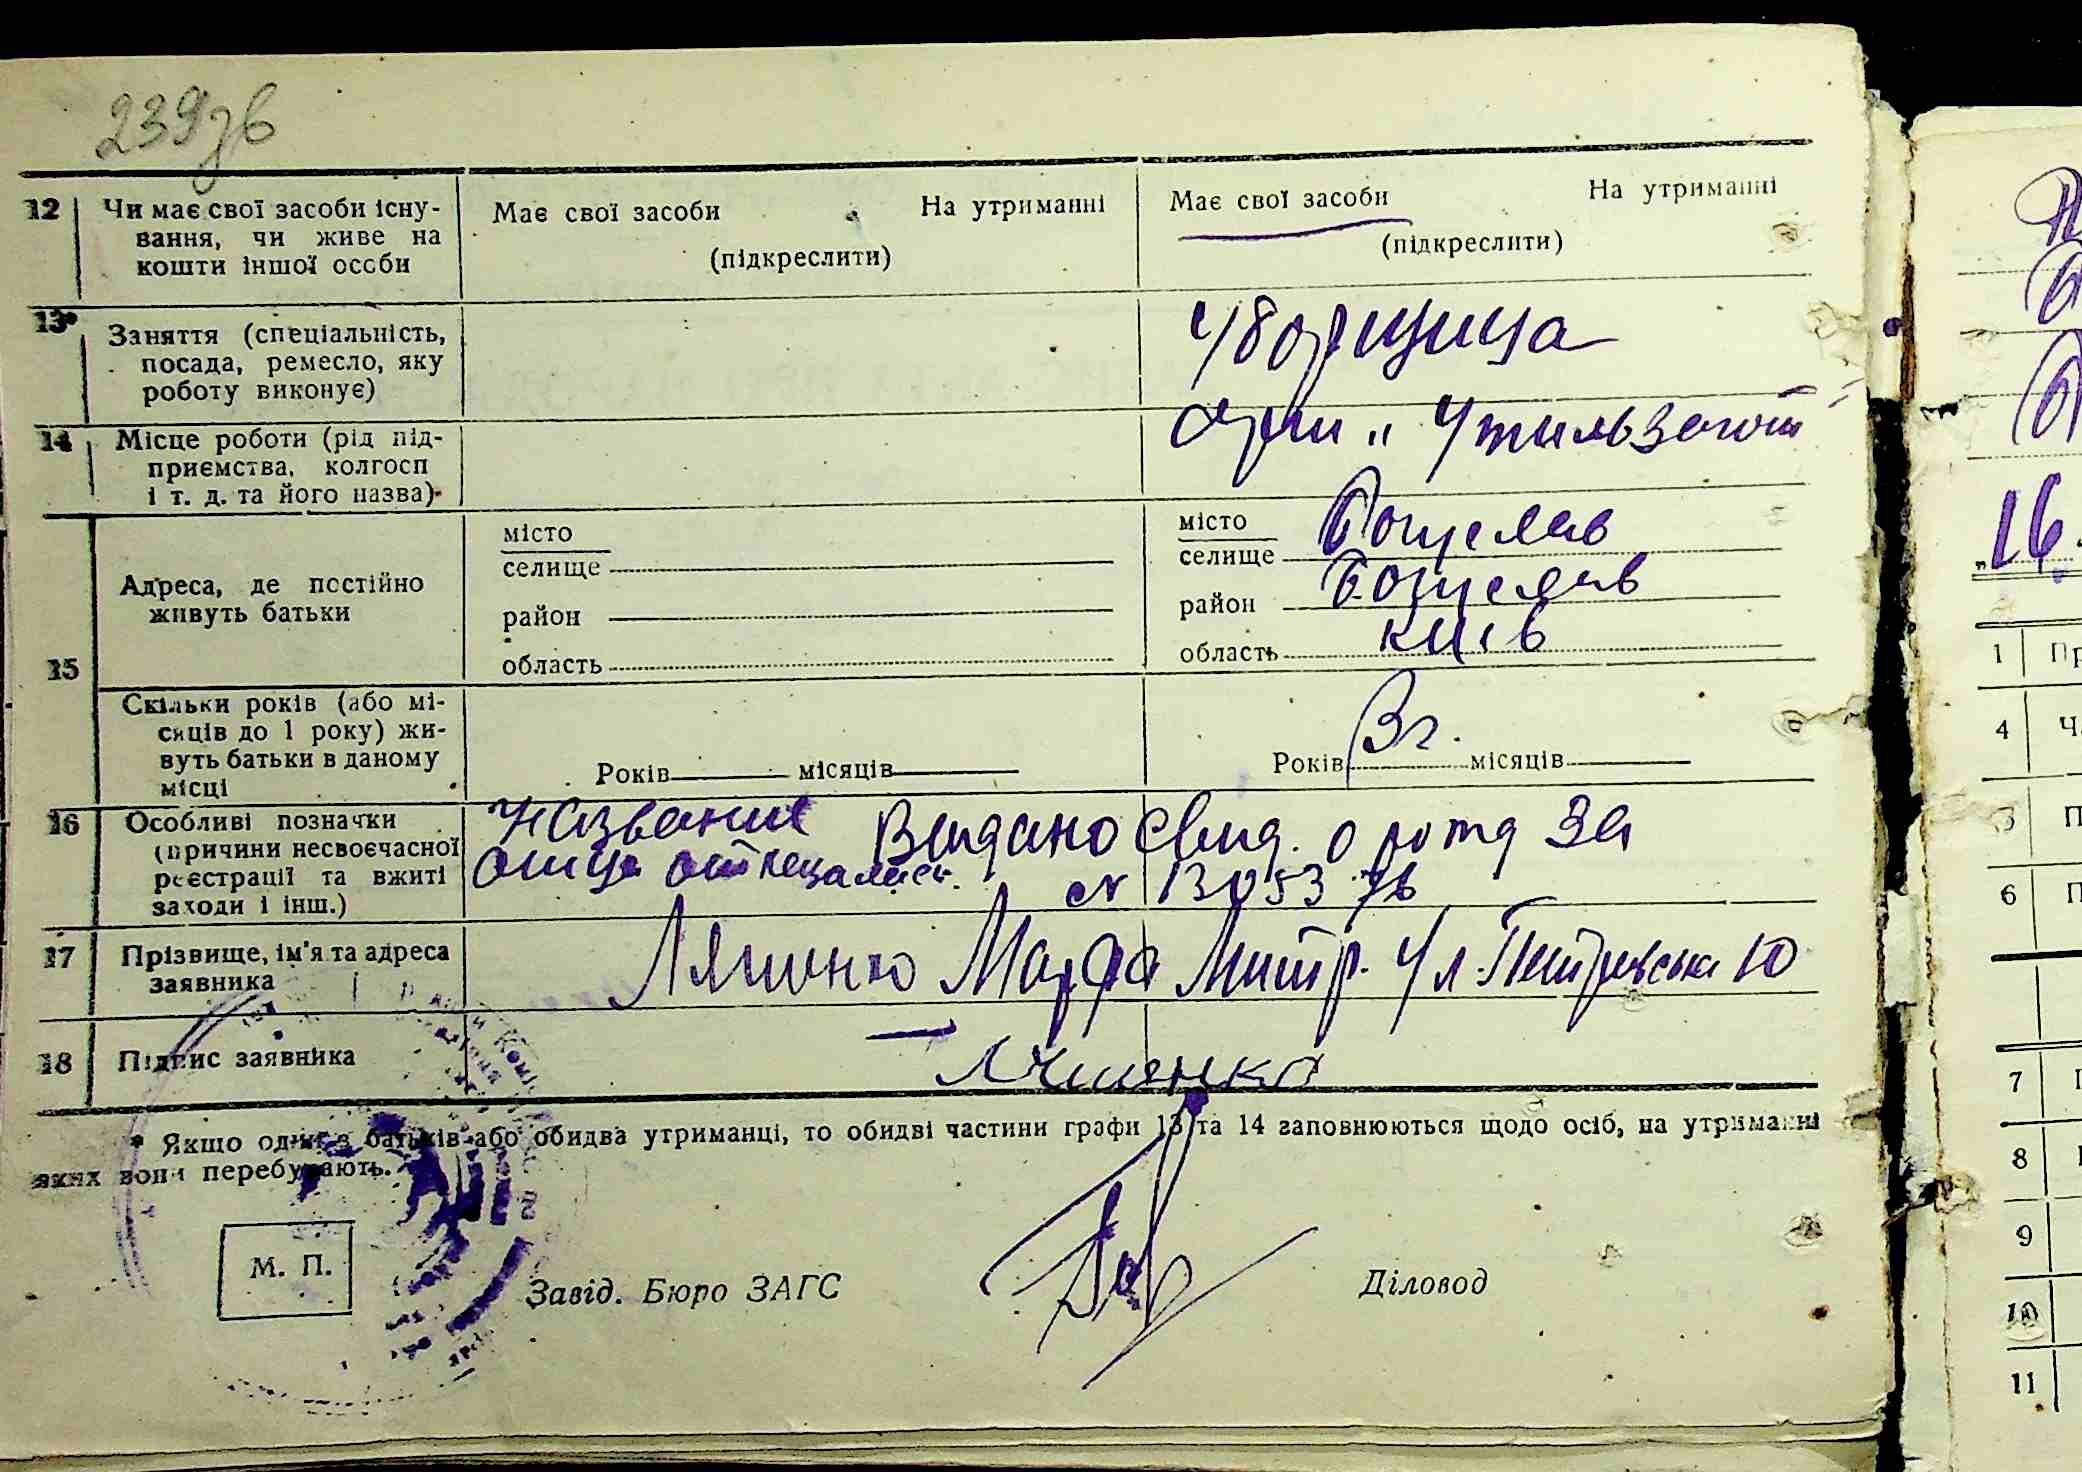 239зв
12 Чи має свої засоби існу-
вання, чи живе на
кошти іншої особи
Має свої засоби На утриманні
(підкреслити)
Має свої засоби На утриманні
(підкреслити)
13* Заняття (спеціальність,
посада, ремесло, яку
роботу виконує)
Уборщица
14 Місце роботи (рід під-
приємства, колгосп
і т. д. та його назва)
"Утильзагот"
15 Адреса, де постійно
живуть батьки
місто
селище
район
область
місто
селище Богуслав
район Богуслав
область Київ
Скільки років (або мі-
сяців до 1 року) жи-
вуть батьки в даному
місці
Років місяців
Років 3 г. місяців
16 Особливі позначки
(причини несвоєчасної
реєстрації та вжиті
заходи і інш.)
Название
отца
Видано свид. о рожд за
N 13053
17 Прізвище, ім'я та адреса
заявника
Ляшенко Марфа Митр. Ул. Петровська 10
18 Підпис заявника
Ляшенко
* Якщо один з батьків або обидва утриманці, то обидві частини графи 13 та 14 заповнюються щодо осіб, на утриманні
яких вони перебувають.
М. П.
Завід. Бюро ЗАГС
Діловод
16
1
4
5
6
7
8
9
10
11